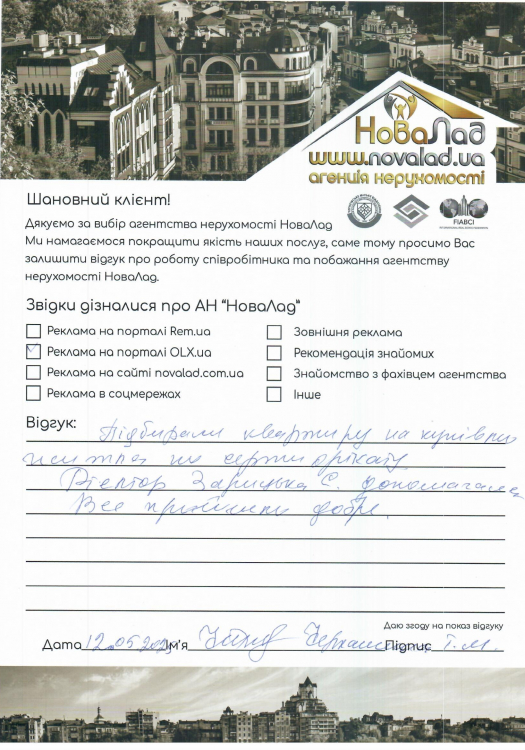 НоваЛад
www.novalad.ua
агенція нерухомості
FIABCI
Шановний клієнт!
Дякуємо за вибір агентства нерухомості НоваЛад
Ми намагаємося покращити якість наших послуг, саме тому просимо Вас
залишити відгук про роботу співробітника та побажання агентству
нерухомості НоваЛад.
Звідки дізналися про АН "НоваЛад"
Реклама на порталі Rem.ua
Зовнішня реклама
Реклама на порталі OLX.ua
Рекомендація знайомих
Реклама на сайті novalad.com.ua
Знайомство з фахівцем агентства
Реклама в соцмережах
Інше
Відгук: Підбирали квартиру на купівлю
житла по сертифікату.
Ріелтор Зарицька С. допомагала
Все пройшло добре.
Даю згоду на показ відгуку
Дата 12.05 Ім'я Підпис Т.М.